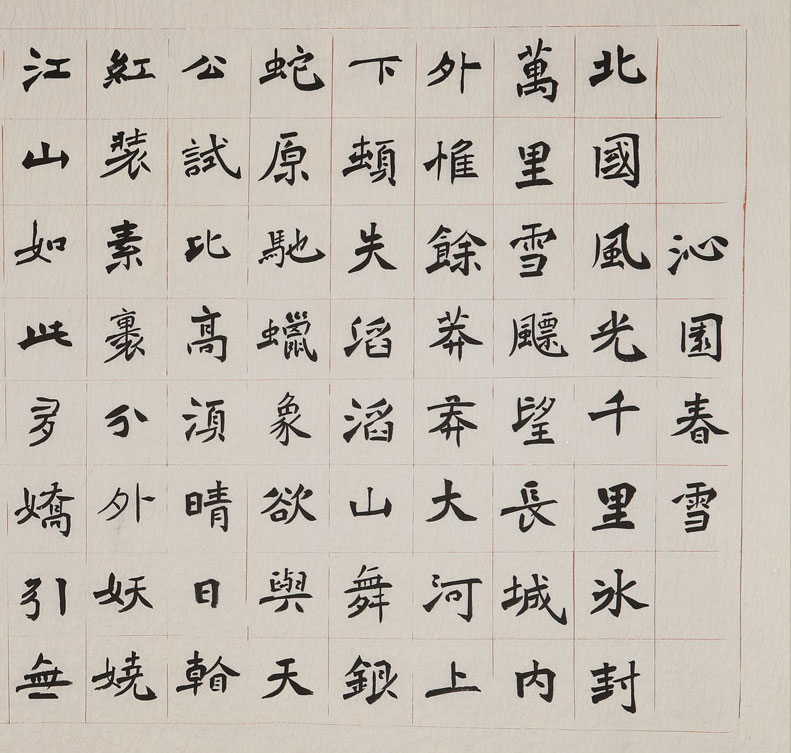 沁園春雪
北國風光千里冰封
萬里雪飃望長城內
外惟餘莽莽大河上
下頓失滔滔山舞銀
蛇原馳蠟象欲與天
公試比高湏晴日看
紅裝素裹分外妖嬈
江山如此多嬌引無